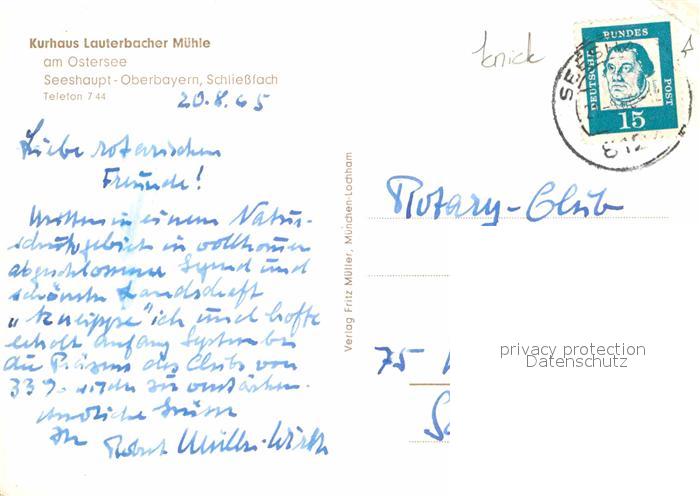 Kurhaus Lauterbacher Mühle
am Ostersee
Seeshaupt-Oberbayern, Schließfach
Telefon 7 44
20.8.65
Liebe rotarischen
Freunde!
Mitten in einem Natur-
schutzgebiet in vollkommen
abgeschlossener Gegend und
schönster Landschaft
„kneippe" ich und hoffe
erholt Anfang September
die Präsenz des Clubs von
33% wieder zu verstärken.
Grüsse
Ihr Robert Müller-Wirth
Verlag Fritz Müller, München-Lochham
knick
DEUTSCHE BUNDESPOST
15
SEES
812
Rotary-Club
75
privacy protection
Datenschutz